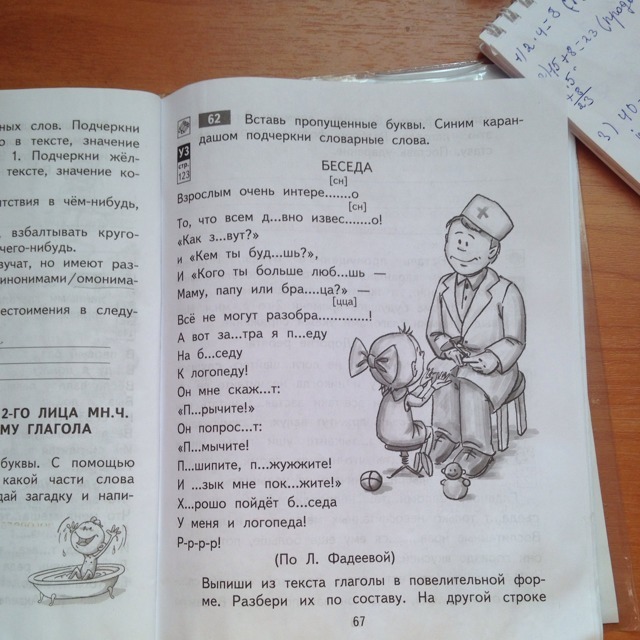 ных слов. Подчеркни
о в тексте, значение
1. Подчеркни жёл-
тексте, значение ко-
тствия в чём-нибудь,
взбалтывать круго-
чего-нибудь.
вучат, но имеют раз-
инонимами/омонима-
естоимения в следу-
2-ГО ЛИЦА МН.Ч.
МУ ГЛАГОЛА
буквы. С помощью
какой части слова
дай загадку и напи-
62 Вставь пропущенные буквы. Синим каран-
дашом подчеркни словарные слова.
УЗ
стр.
123
БЕСЕДА
[сн]
Взрослым очень интере.......о
[сн]
То, что всем д...вно извес.......о!
«Как з...вут?»
и «Кем ты буд...шь?»,
И «Кого ты больше люб...шь —
Маму, папу или бра....ца?» —
[цца]
Всё не могут разобра............!
А вот за...тра я п...еду
На б...седу
К логопеду!
Он мне скаж...т:
«П...рычите!»
Он попрос...т:
«П...мычите!
П...шипите, п...жужжите!
И ...зык мне пок...жите!»
Х...рошо пойдёт б...седа
У меня и логопеда!
Р-р-р-р!
(По Л. Фадеевой)
Выпиши из текста глаголы в повелительной фор-
ме. Разбери их по составу. На другой строке
67
1) 2·4=8
+8=23
3) 40